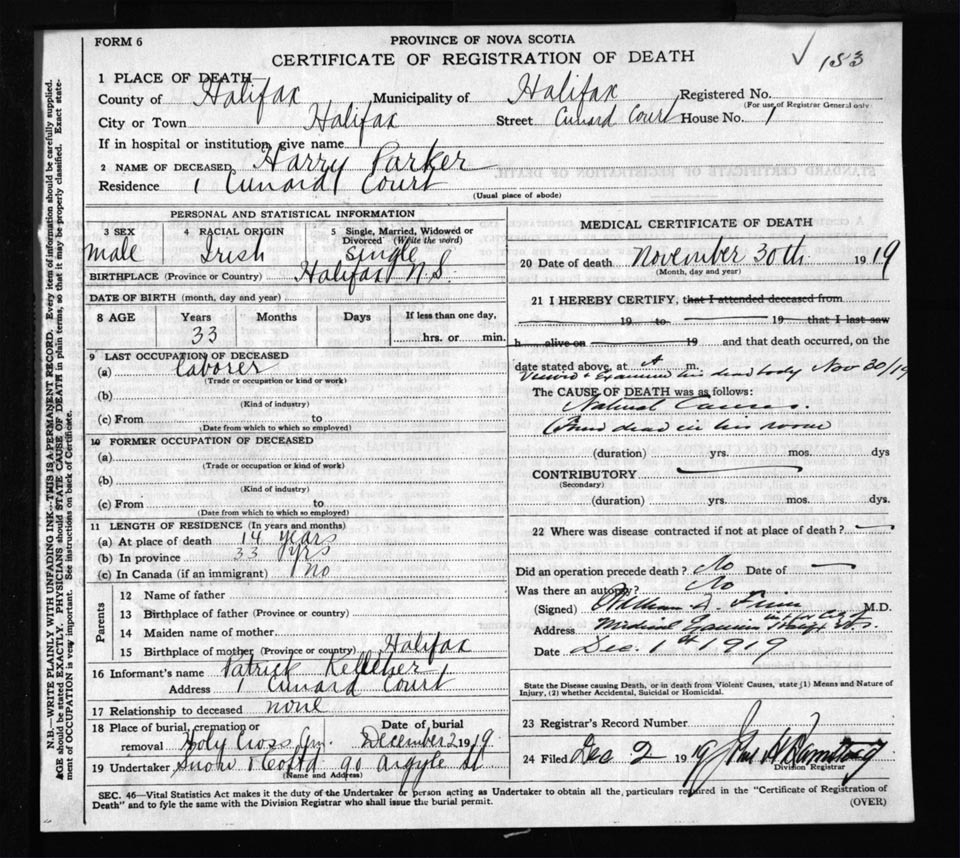 FORM 6
PROVINCE OF NOVA SCOTIA
CERTIFICATE OF REGISTRATION OF DEATH
✓ 183
1 PLACE OF DEATH
County of Halifax Municipality of Halifax Registered No.
(For use of Registrar General only)
City or Town Halifax Street Cunard Court House No. 1
If in hospital or institution, give name
2 NAME OF DECEASED Harry Parker
Residence 1 Cunard Court
(Usual place of abode)
PERSONAL AND STATISTICAL INFORMATION
3 SEX 4 RACIAL ORIGIN 5 Single, Married, Widowed or Divorced (Write the word)
male Irish single
BIRTHPLACE (Province or Country) Halifax N.S.
DATE OF BIRTH (month, day and year)
8 AGE Years Months Days If less than one day,
33 hrs. or min.
9 LAST OCCUPATION OF DECEASED
(a) laborer
(Trade or occupation or kind or work)
(b)
(Kind of industry)
(c) From to
(Date from which to which so employed)
10 FORMER OCCUPATION OF DECEASED
(a)
(Trade or occupation or kind of work)
(b)
(Kind of industry)
(c) From to
(Date from which to which so employed)
11 LENGTH OF RESIDENCE (In years and months)
(a) At place of death 14 years
(b) In province 33 yrs
(c) In Canada (if an immigrant) no
Parents
12 Name of father
13 Birthplace of father (Province or country)
14 Maiden name of mother
15 Birthplace of mother (Province or country) Halifax
16 Informant's name Patrick Kelleher
Address 1 Cunard Court
17 Relationship to deceased none
18 Place of burial, cremation or removal Holy Cross Date of burial December 2 1919
19 Undertaker Snow & Co Ltd 90 Argyle St
(Name and Address)
MEDICAL CERTIFICATE OF DEATH
20 Date of death November 30th 1919
(Month, day and year)
21 I HEREBY CERTIFY, that I attended deceased from
19 to 19 that I last saw
h alive on 19 and that death occurred, on the
date stated above, at A m.
Viewed & Examined his dead body Nov 30/19
The CAUSE OF DEATH was as follows:
Natural Causes.
Found dead in his room
(duration) yrs. mos. dys
CONTRIBUTORY
(Secondary)
(duration) yrs. mos. dys.
22 Where was disease contracted if not at place of death?
Did an operation precede death? No Date of
Was there an autopsy? No
(Signed) William D. Finn M.D.
Address Medical Examiner
Date Dec. 1st 1919
State the Disease causing Death, or in death from Violent Causes, state (1) Means and Nature of
Injury, (2) whether Accidental, Suicidal or Homicidal.
23 Registrar's Record Number
24 Filed Dec 2 1919
Division Registrar
SEC. 46—Vital Statistics Act makes it the duty of the Undertaker or person acting as Undertaker to obtain all the, particulars required in the "Certificate of Registration of
Death" and to fyle the same with the Division Registrar who shall issue the burial permit.
(OVER)
N.B.—WRITE PLAINLY WITH UNFADING INK—THIS IS A PERMANENT RECORD. Every item of information should be carefully supplied.
AGE should be stated EXACTLY. PHYSICIANS should STATE CAUSE OF DEATH in plain terms, so that it may be properly classified. Exact state-
ment of OCCUPATION is very important. See instructions on back of Certificate.